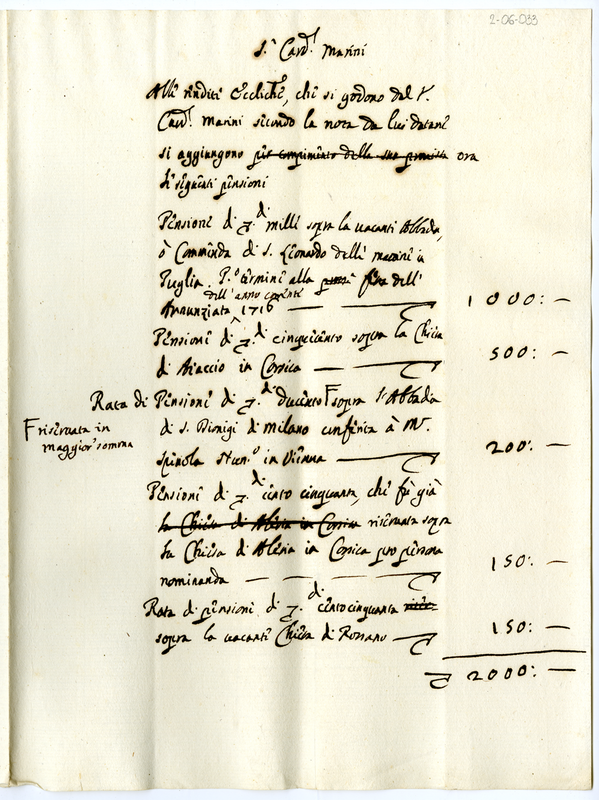 2-06-033
S.r Card.l Marini
Alle rendite Eccl.che, che si godono dal S.r
Card.l Marini secondo la nota da lui datami
si aggiungono per compimento della sua ora
le seguenti pensioni
Pensione di d.i mille sopra la vacante Abbadia,
ò Commenda di S. Leonardo delle matine in
Puglia. P.o termine alla festa dell'
dell'anno corrente
Annunziata 1716 — 1000: —
Pensione di d.i cinquecento sopra la Chiesa
di Aiaccio in Corsica — 500: —
Rata di Pensione di d.i ducento F sopra l'Abbadia
F riservata in
maggior somma
di S. Dionigi di Milano conferita à M.r
Spinola Nun.o in Vienna — 200: —
Pensione di d.i cento cinquanta, che fù già
la Chiesa di Aleria in Corsica riservata sopra
la Chiesa di Aleria in Corsica pro persona
nominanda — 150: —
Rata di pensione di d.i cento cinquanta
sopra la vacante Chiesa di Rossano — 150: —
2000: —